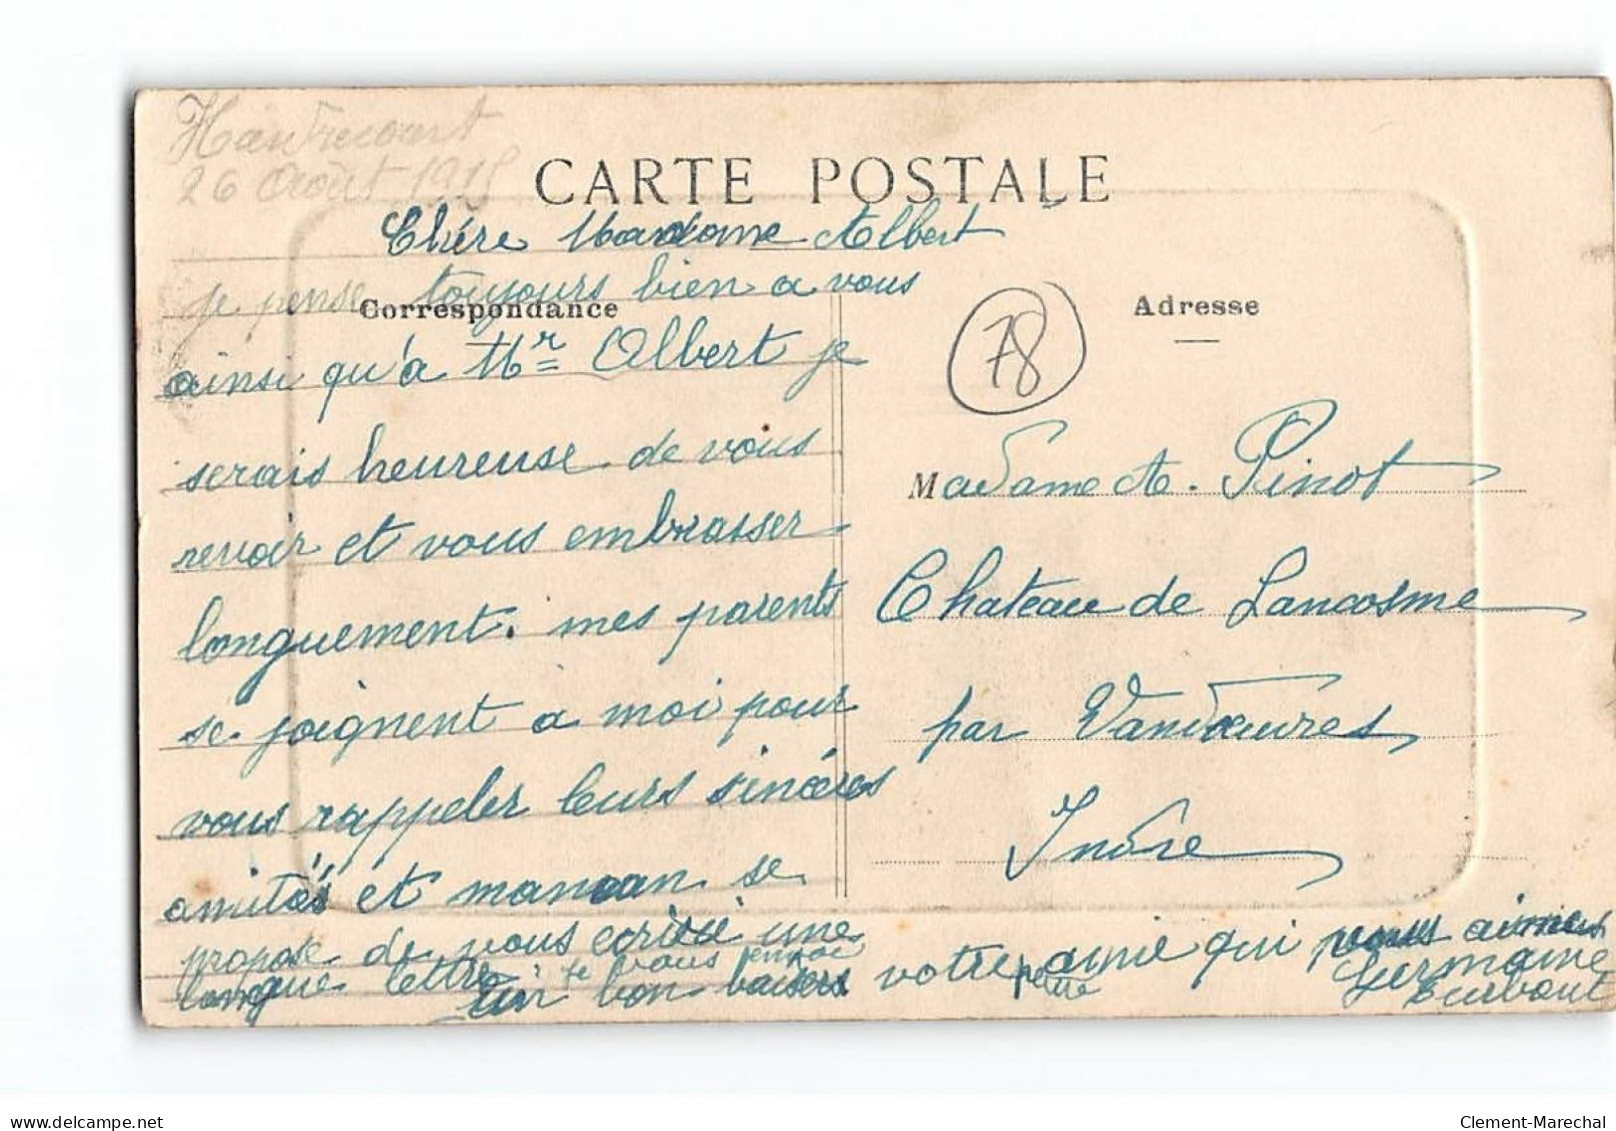 Hautrecourt
26 Août 1915
CARTE POSTALE
Chére Madame Albert
je pense toujours bien a vous
Correspondance
ainsi qu'a Mr Albert je
serais heureuse de vous
revoir et vous embrasser
longuement. mes parents
se joignent a moi pour
vous rappeler leurs sincéres
amités et maman se
propose de vous écrire une
longue lettre je vous envoie
un bon baisers votre petite amie qui vous aimes
Germaine
78
Adresse
Madame A. Pinot
Chateau de Lancosme
par Vandœuvres
Indre
Clement-Marechal
delcampe.net